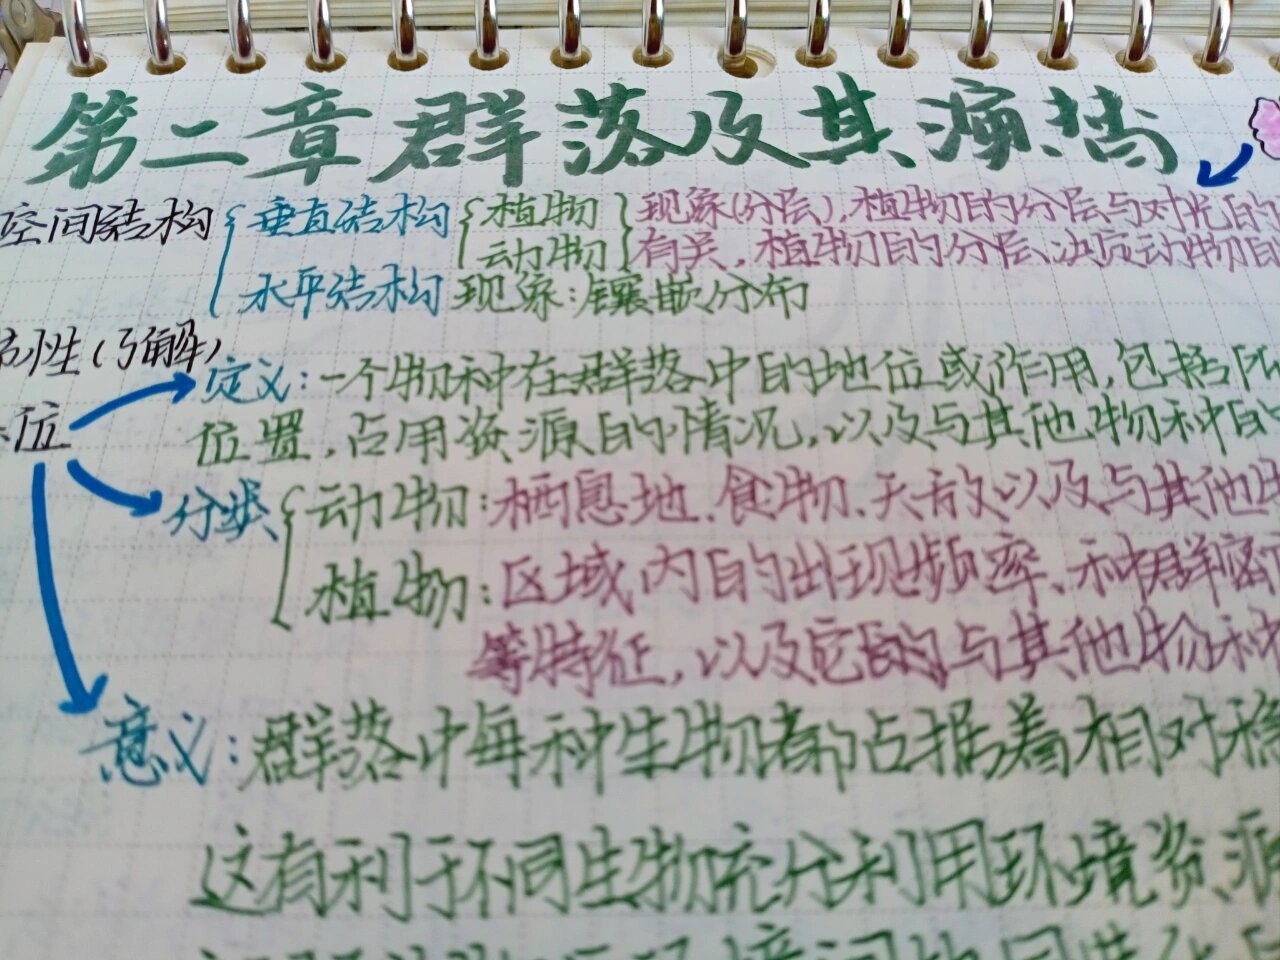 第二章群落及其演替
空间结构 垂直结构 植物 现象(分层),植物的分层与对光的
动物 有关,植物的分层决定动物的
水平结构 现象:镶嵌分布
性(了解)
位 定义:一个物种在群落中的地位或作用,包括所
位置,占用资源的情况,以及与其他物种的
分类 动物:栖息地、食物、天敌以及与其他
植物:区域内的出现频率、种群密
等特征,以及它的与其他物种
意义:群落中每种生物都占据着相对稳
这有利于不同生物充分利用环境资源